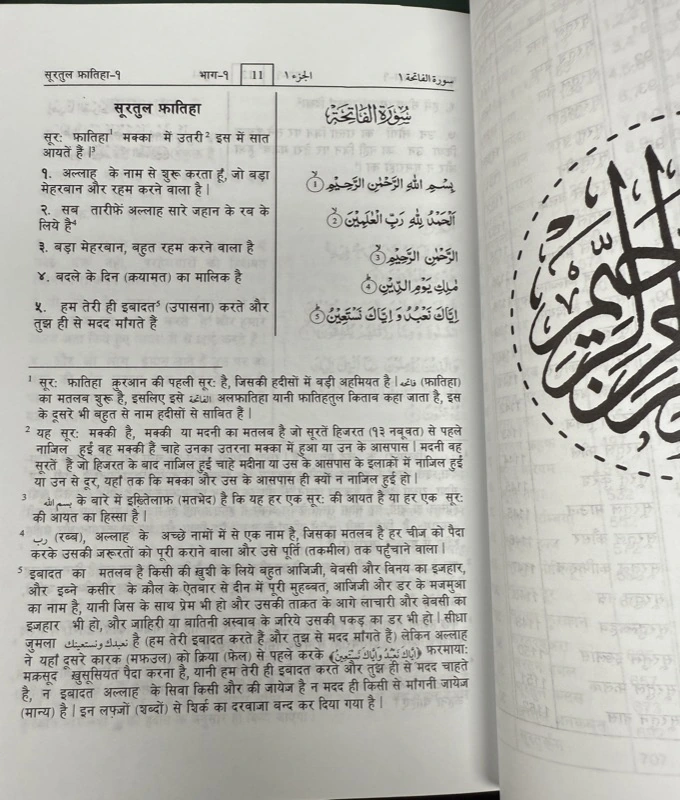 सूरतुल फ़ातिहा-१ भाग-१ 11 الجزء ١ سورة الفاتحة ١
सूरतुल फ़ातिहा
سُورَةُ الفَاتِحَةِ
सूर: फ़ातिहा¹ मक्का में उतरी² इस में सात
आयतें हैं।³
१. अल्लाह के नाम से शुरू करता हूँ, जो बड़ा
मेहरबान और रहम करने वाला है।
بِسْمِ اللهِ الرَّحْمٰنِ الرَّحِيْمِ ①
२. सब तारीफ़ें अल्लाह सारे जहान के रब के
लिये है⁴
اَلْحَمْدُ لِلّٰهِ رَبِّ الْعٰلَمِيْنَ ②
३. बड़ा मेहरबान, बहुत रहम करने वाला है
الرَّحْمٰنِ الرَّحِيْمِ ③
४. बदले के दिन (क़यामत) का मालिक है
مٰلِكِ يَوْمِ الدِّيْنِ ④
५. हम तेरी ही इबादत⁵ (उपासना) करते और
तुझ ही से मदद माँगते है
اِيَّاكَ نَعْبُدُ وَ اِيَّاكَ نَسْتَعِيْنُ ⑤
¹ सूर: फ़ातिहा क़ुरआन की पहली सूर: है, जिसकी हदीसों में बड़ी अहमियत है। فاتحه (फ़ातिहा)
का मतलब शुरू है, इसलिए इसे الفاتحة अलफ़ातिहा यानी फ़ातिहतुल किताब कहा जाता है, इस
के दूसरे भी बहुत से नाम हदीसों से साबित हैं।
² यह सूर: मक्की है, मक्की या मदनी का मतलब है जो सूरतें हिजरत (१३ नबूवत) से पहले
नाज़िल हुईं वह मक्की हैं चाहे उनका उतरना मक्का में हुआ या उन के आसपास। मदनी वह
सूरतें हैं जो हिजरत के बाद नाज़िल हुईं चाहे मदीना या उस के आसपास के इलाक़ों में नाज़िल हुईं
या उन से दूर, यहाँ तक कि मक्का और उस के आसपास ही क्यों न नाज़िल हुई हो।
³ بسم الله के बारे में इख़्तिलाफ़ (मतभेद) है कि यह हर एक सूर: की आयत है या हर एक सूर:
की आयत का हिस्सा है।
⁴ رب (रब्ब), अल्लाह के अच्छे नामों में से एक नाम है, जिसका मतलब है हर चीज़ को पैदा
करके उसकी जरूरतों को पूरी कराने वाला और उसे पूर्ति (तकमील) तक पहुँचाने वाला।
⁵ इबादत का मतलब है किसी की ख़ुशी के लिये बहुत आजिज़ी, बेबसी और विनय का इज़हार,
और इब्ने कसीर के क़ौल के ऐतबार से दीन में पूरी मुहब्बत, आजिज़ी और डर के मजमुआ
का नाम है, यानी जिस के साथ प्रेम भी हो और उसकी ताक़त के आगे लाचारी और बेबसी का
इज़हार भी हो, और ज़ाहिरी या बातिनी अस्बाब के ज़रिये उसकी पकड़ का डर भी हो। सीधा
जुमला نعبدك ونستعينك है (हम तेरी इबादत करते हैं और तुझ से मदद माँगते है) लेकिन अल्लाह
ने यहाँ दूसरे कारक (मफ़ऊल) को क्रिया (फ़ेल) से पहले करके ﴿إِيَّاكَ نَعْبُدُ وَإِيَّاكَ نَسْتَعِينُ﴾ फ़रमाया:
मक़सूद ख़ुसूसियत पैदा करना है, यानी हम तेरी ही इबादत करते और तुझ ही से मदद चाहते
हैं, न इबादत अल्लाह के सिवा किसी और की जायेज़ है न मदद ही किसी से माँगनी जायेज़
(मान्य) है। इन लफ़्ज़ों (शब्दों) से शिर्क का दरवाज़ा बन्द कर दिया गया है।